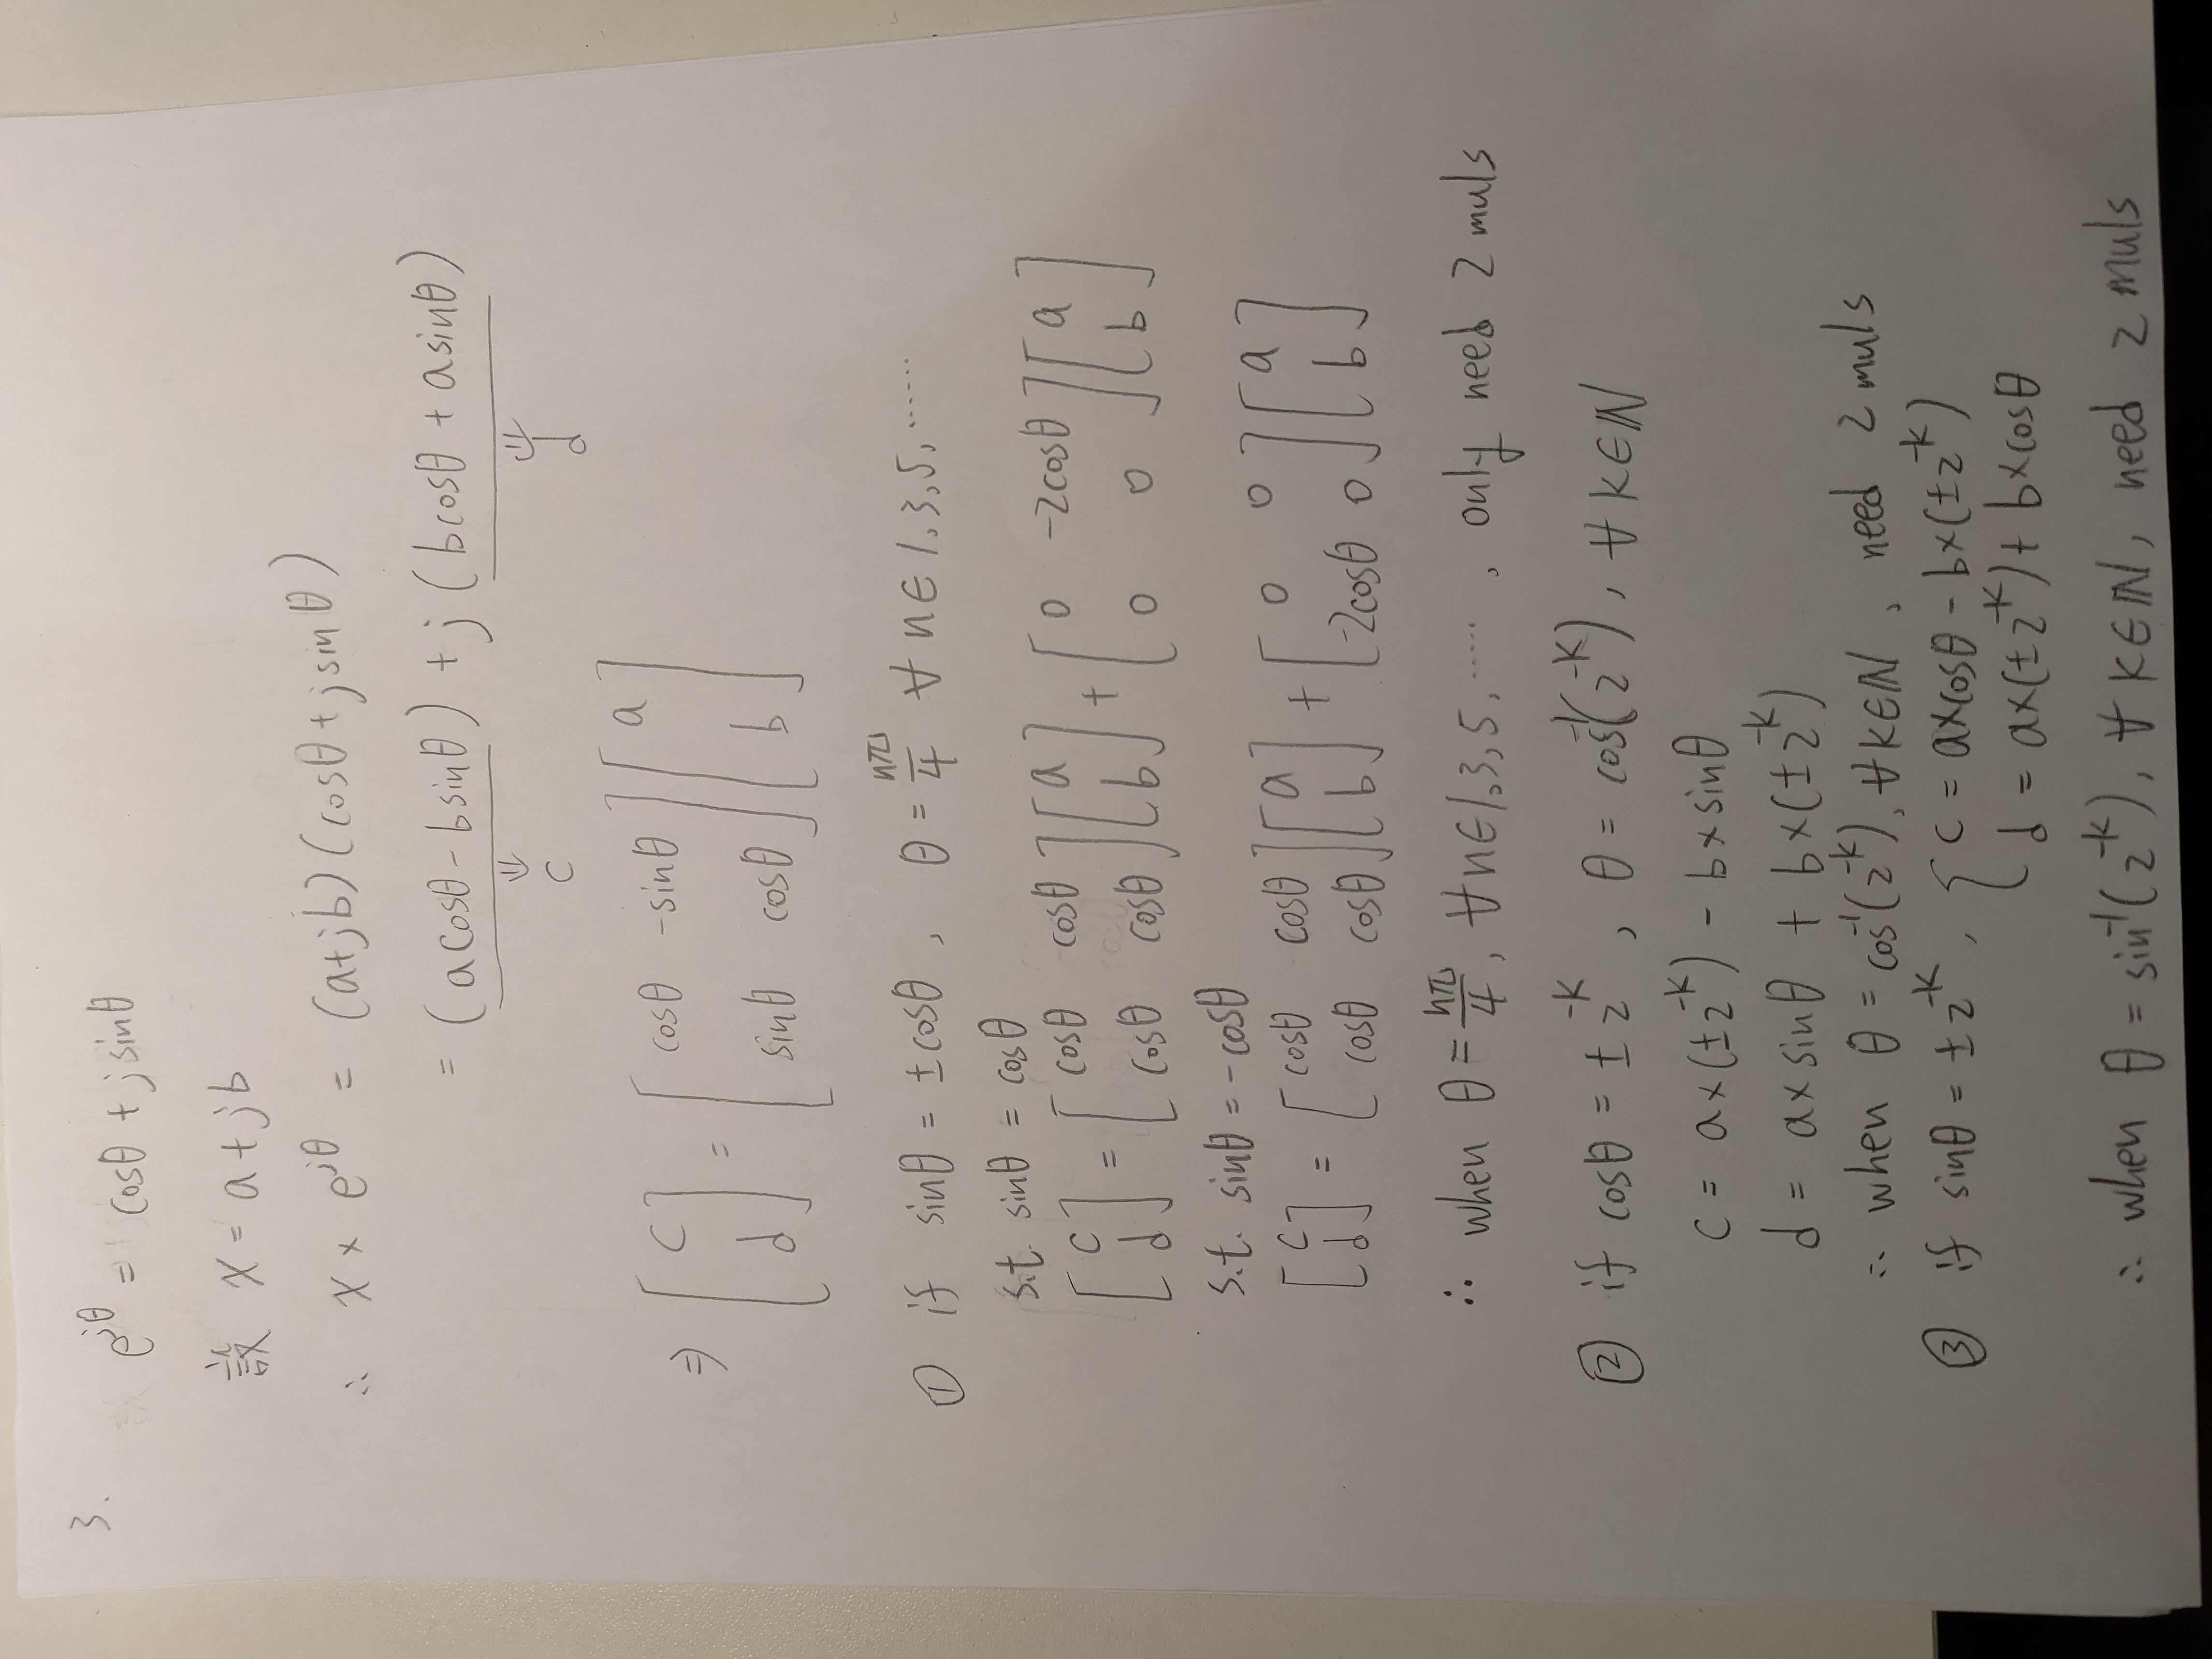 3.
e^{jθ} = cosθ + j sinθ
設 x = a + jb
∴ x × e^{jθ} = (a+jb)(cosθ + j sinθ)
= (a cosθ - b sinθ) + j (b cosθ + a sinθ)
⇓ ⇓
c d
⇒ [c; d] = [cosθ -sinθ; sinθ cosθ] [a; b]
① if sinθ = ±cosθ, θ = nπ/4 ∀ n ∈ 1,3,5,……
s.t. sinθ = cosθ
[c; d] = [cosθ cosθ; cosθ cosθ] [a; b] + [0 -2cosθ; 0 0] [a; b]
s.t. sinθ = -cosθ
[c; d] = [cosθ cosθ; cosθ cosθ] [a; b] + [0 0; -2cosθ 0] [a; b]
∴ when θ = nπ/4, ∀ n ∈ 1,3,5,……, only need 2 muls
② if cosθ = ±2^{-k}, θ = cos^{-1}(2^{-k}), ∀ k ∈ ℕ
c = a×(±2^{-k}) - b×sinθ
d = a×sinθ + b×(±2^{-k})
∴ when θ = cos^{-1}(2^{-k}), ∀ k ∈ ℕ, need 2 muls
③ if sinθ = ±2^{-k}, { c = a×cosθ - b×(±2^{-k})
d = a×(±2^{-k}) + b×cosθ
∴ when θ = sin^{-1}(2^{-k}), ∀ k ∈ ℕ, need 2 muls